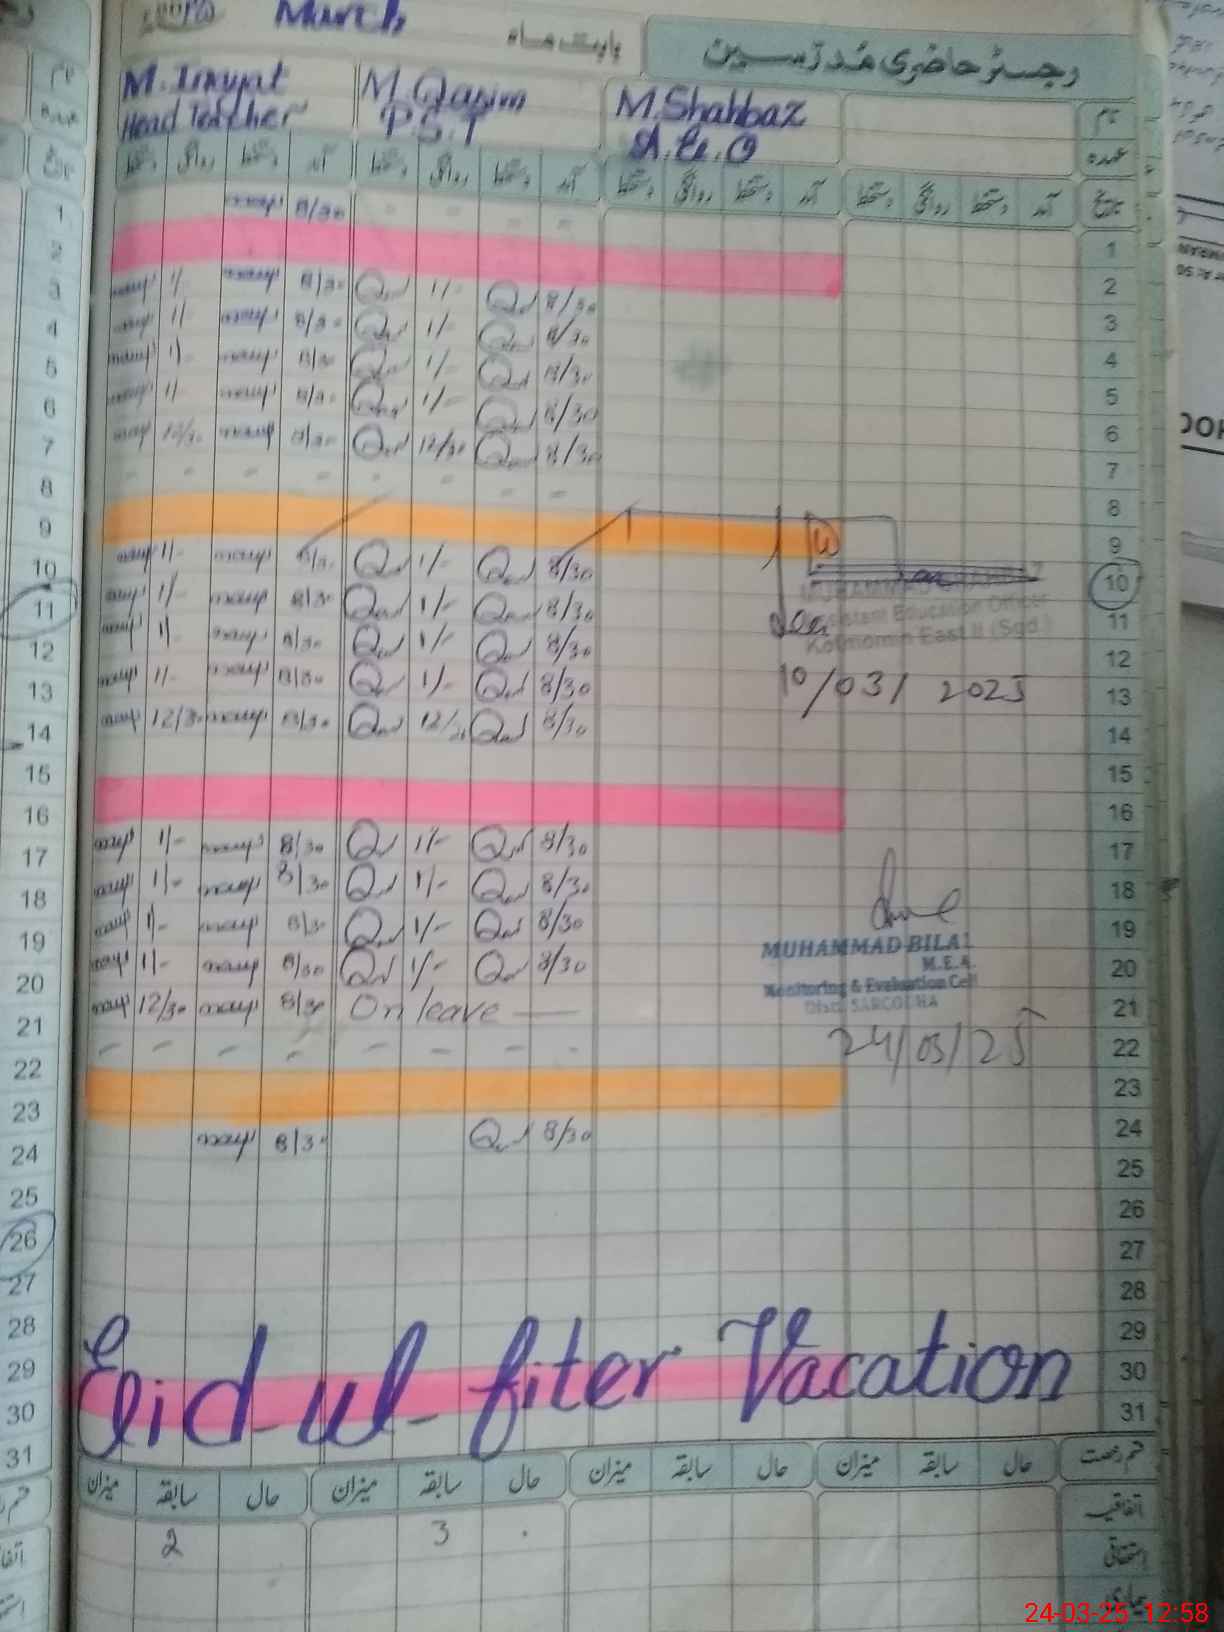 March
بابت ماہ
رجسٹر حاضری مدرسین
M. Inayat
Head Teacher
M. Qasim
P.S.T
M. Shahbaz
A.E.O
نام
عہدہ
دستخط روانگی دستخط آمد دستخط روانگی دستخط آمد دستخط روانگی دستخط آمد دستخط روانگی دستخط آمد تاریخ
1 8/30 - - - - 1
2 2
3 1/- 8/30 1/- 8/30 3
4 1/- 8/30 1/- 8/30 4
5 1/- 8/30 1/- 8/30 5
6 1/- 8/30 1/- 8/30 6
7 12/30 8/30 12/30 8/30 7
8 - - - - - - - - 8
9 9
10 1/- 8/30 1/- 8/30 10
11 1/- 8/30 1/- 8/30 11
12 1/- 8/30 1/- 8/30 12
13 1/- 8/30 1/- 8/30 13
14 12/30 8/30 8/30 14
MUHAMMAD SHAHBAZ
Assistant Education Officer
Kotmomin East II (Sgd.)
10/03/2025
15 15
16 16
17 1/- 8/30 1/- 8/30 17
18 1/- 8/30 1/- 8/30 18
19 1/- 8/30 1/- 8/30 19
20 1/- 8/30 1/- 8/30 20
21 12/30 8/30 On leave — 21
MUHAMMAD BILAL
M.E.A.
Monitoring & Evaluation Cell
Distt. SARGODHA
24/03/25
22 - - - - - - - - 22
23 23
24 8/30 8/30 24
25 25
26 26
27 27
28 28
29 29
30 30
31 31
Eid-ul-fiter Vacation
میزان سابقہ حال میزان سابقہ حال میزان سابقہ حال میزان سابقہ حال قسم رخصت
2 3 اتفاقیہ
استحقاقی
بیماری
24-03-25 12:58